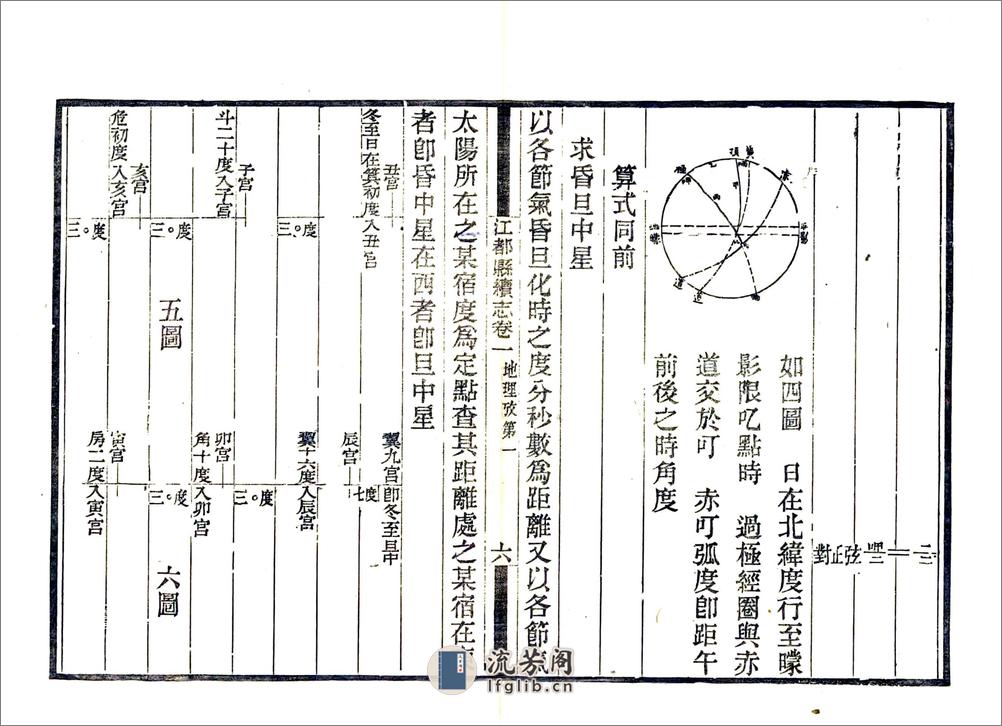 二三
二
四三
弦
正
對
如四圖 日在北緯度行至矇
影限叺點時 過極經圈與赤
道交於叮 赤叮弧度卽距午
前後之時角度
算式同前
求昏旦中星
以各節氣昏旦化時之度分秒數爲距離又以各節
江都縣續志卷一 地理攷第一 六
太陽所在之某宿度爲定點查其距離處之某宿在
者卽昏中星在西者卽旦中星
丑宮
冬至日在箕初度入丑宮
三〇度
子宮
斗二十度入子宮
三〇度
亥宮
危初度入亥宮
三〇度
五圖
翼九宮卽冬至旦中
七度
辰宮
翼十六度入辰宮
三〇度
卯宮
角十度入卯宮
三〇度
寅宮
房二度入寅宮
六圖
流芳阁
lfglib.cn